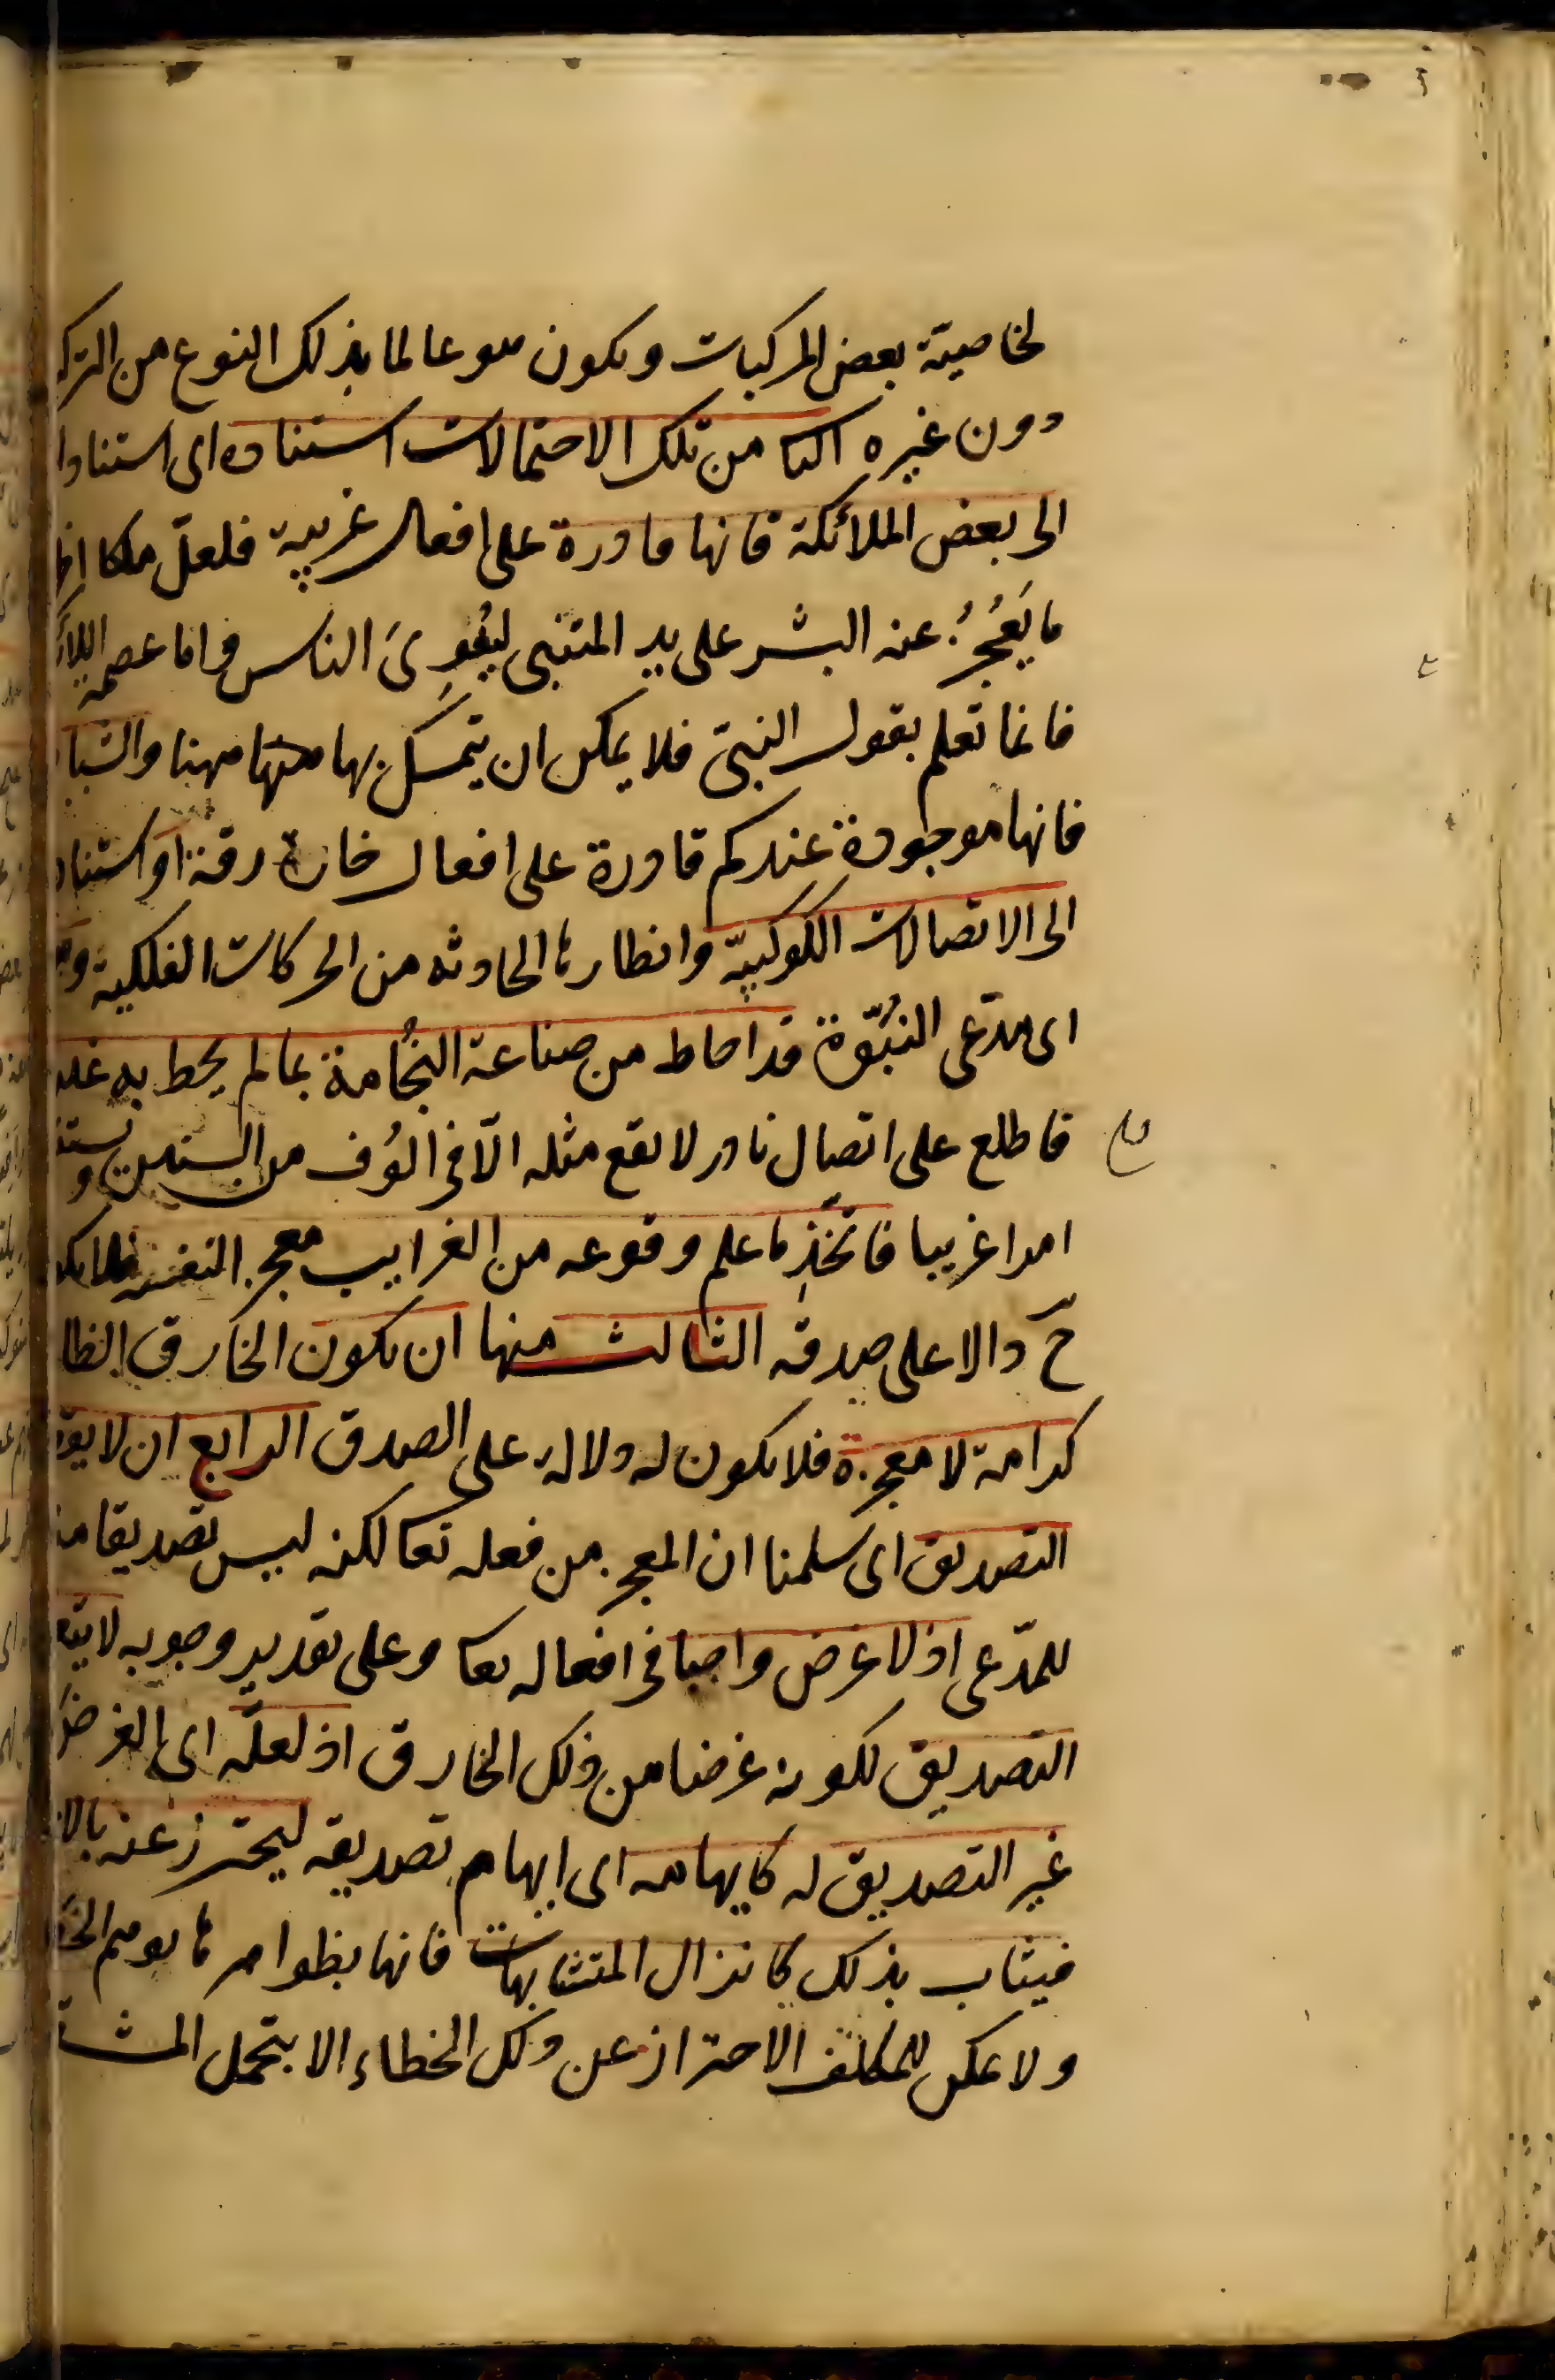 لخاصية بعض المركبات ويكون هو عالما بذلك النوع من
دون غيره الثا من تلك الاحتمالات استناده اى استناد
الى بعض الملائكة فانها قادرة على افعال غريبة فلعلّ ملكا
ما يَعْجُزُ عنه البشر على يد المتنبى ليُغوِىَ الناس واما عصمة
فانما تعلم بقول النبىّ فلا يمكن ان يتمسك بها ههنا
فانها موجودة عندكم قادرة على افعال خارقة او
الى الاتصالات الكوكبيّة وانظارها الحادثه من الحركات الفلكية
اى مدّعى النُبُوّة قد احاط من صناعة النجُامة بما لم يحط به غيره
فاطلع على اتصال نادر لا يقع مثله الّا فى الُوف من السنين
امرا غريبا فاتخّذ ما علم وقوعه من الغرايب معجز النفسه فلا
حّ دالا على صدقه الثالث منها ان يكون الخارق
كرامة لا معجزة فلا يكون له دلاله على الصدق الرابع ان لا
التصديق اى سلمنا ان المعجز من فعله تعا لكنه ليس تصديقا
للمدّعى اذ لا غرض واجبا فى افعاله تعا وعلى تقدير وجوبه لا
التصديق لكونه غرضا من ذلك الخارق اذ لعلّه اى الغرض
غير التصديق له كايهامه اى ايهام تصديقه ليحترز عنه
فيثاب بذلك كانزال المتشابهات فانها بظواهرها يوهم
ولا يمكن للمكلف الاحتراز عن ذلك الخطاء الا بتحمل